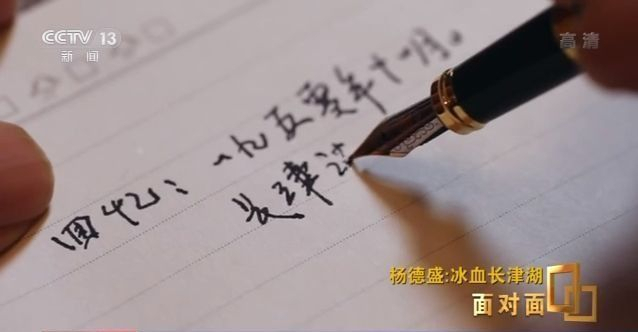 CCTV 13
新闻
高清
回忆：一九五零年十一月。
长津
杨德盛:冰血长津湖
面对面